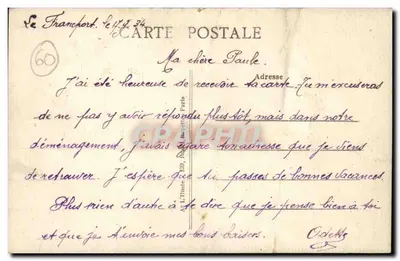 Le Francport, le 17.8.34
CARTE POSTALE
60
Ma chère Paule.
Adresse
J'ai été heureuse de recevoir ta carte. Tu m'excuseras
de ne pas y avoir répondu plus tôt, mais dans notre
déménagement, j'avais égaré ton adresse que je viens
de retrouver. J'espère que tu passes de bonnes vacances.
Plus rien d'autre à te dire que je pense bien à toi
et que je t'envoie mes bons baisers. Odette